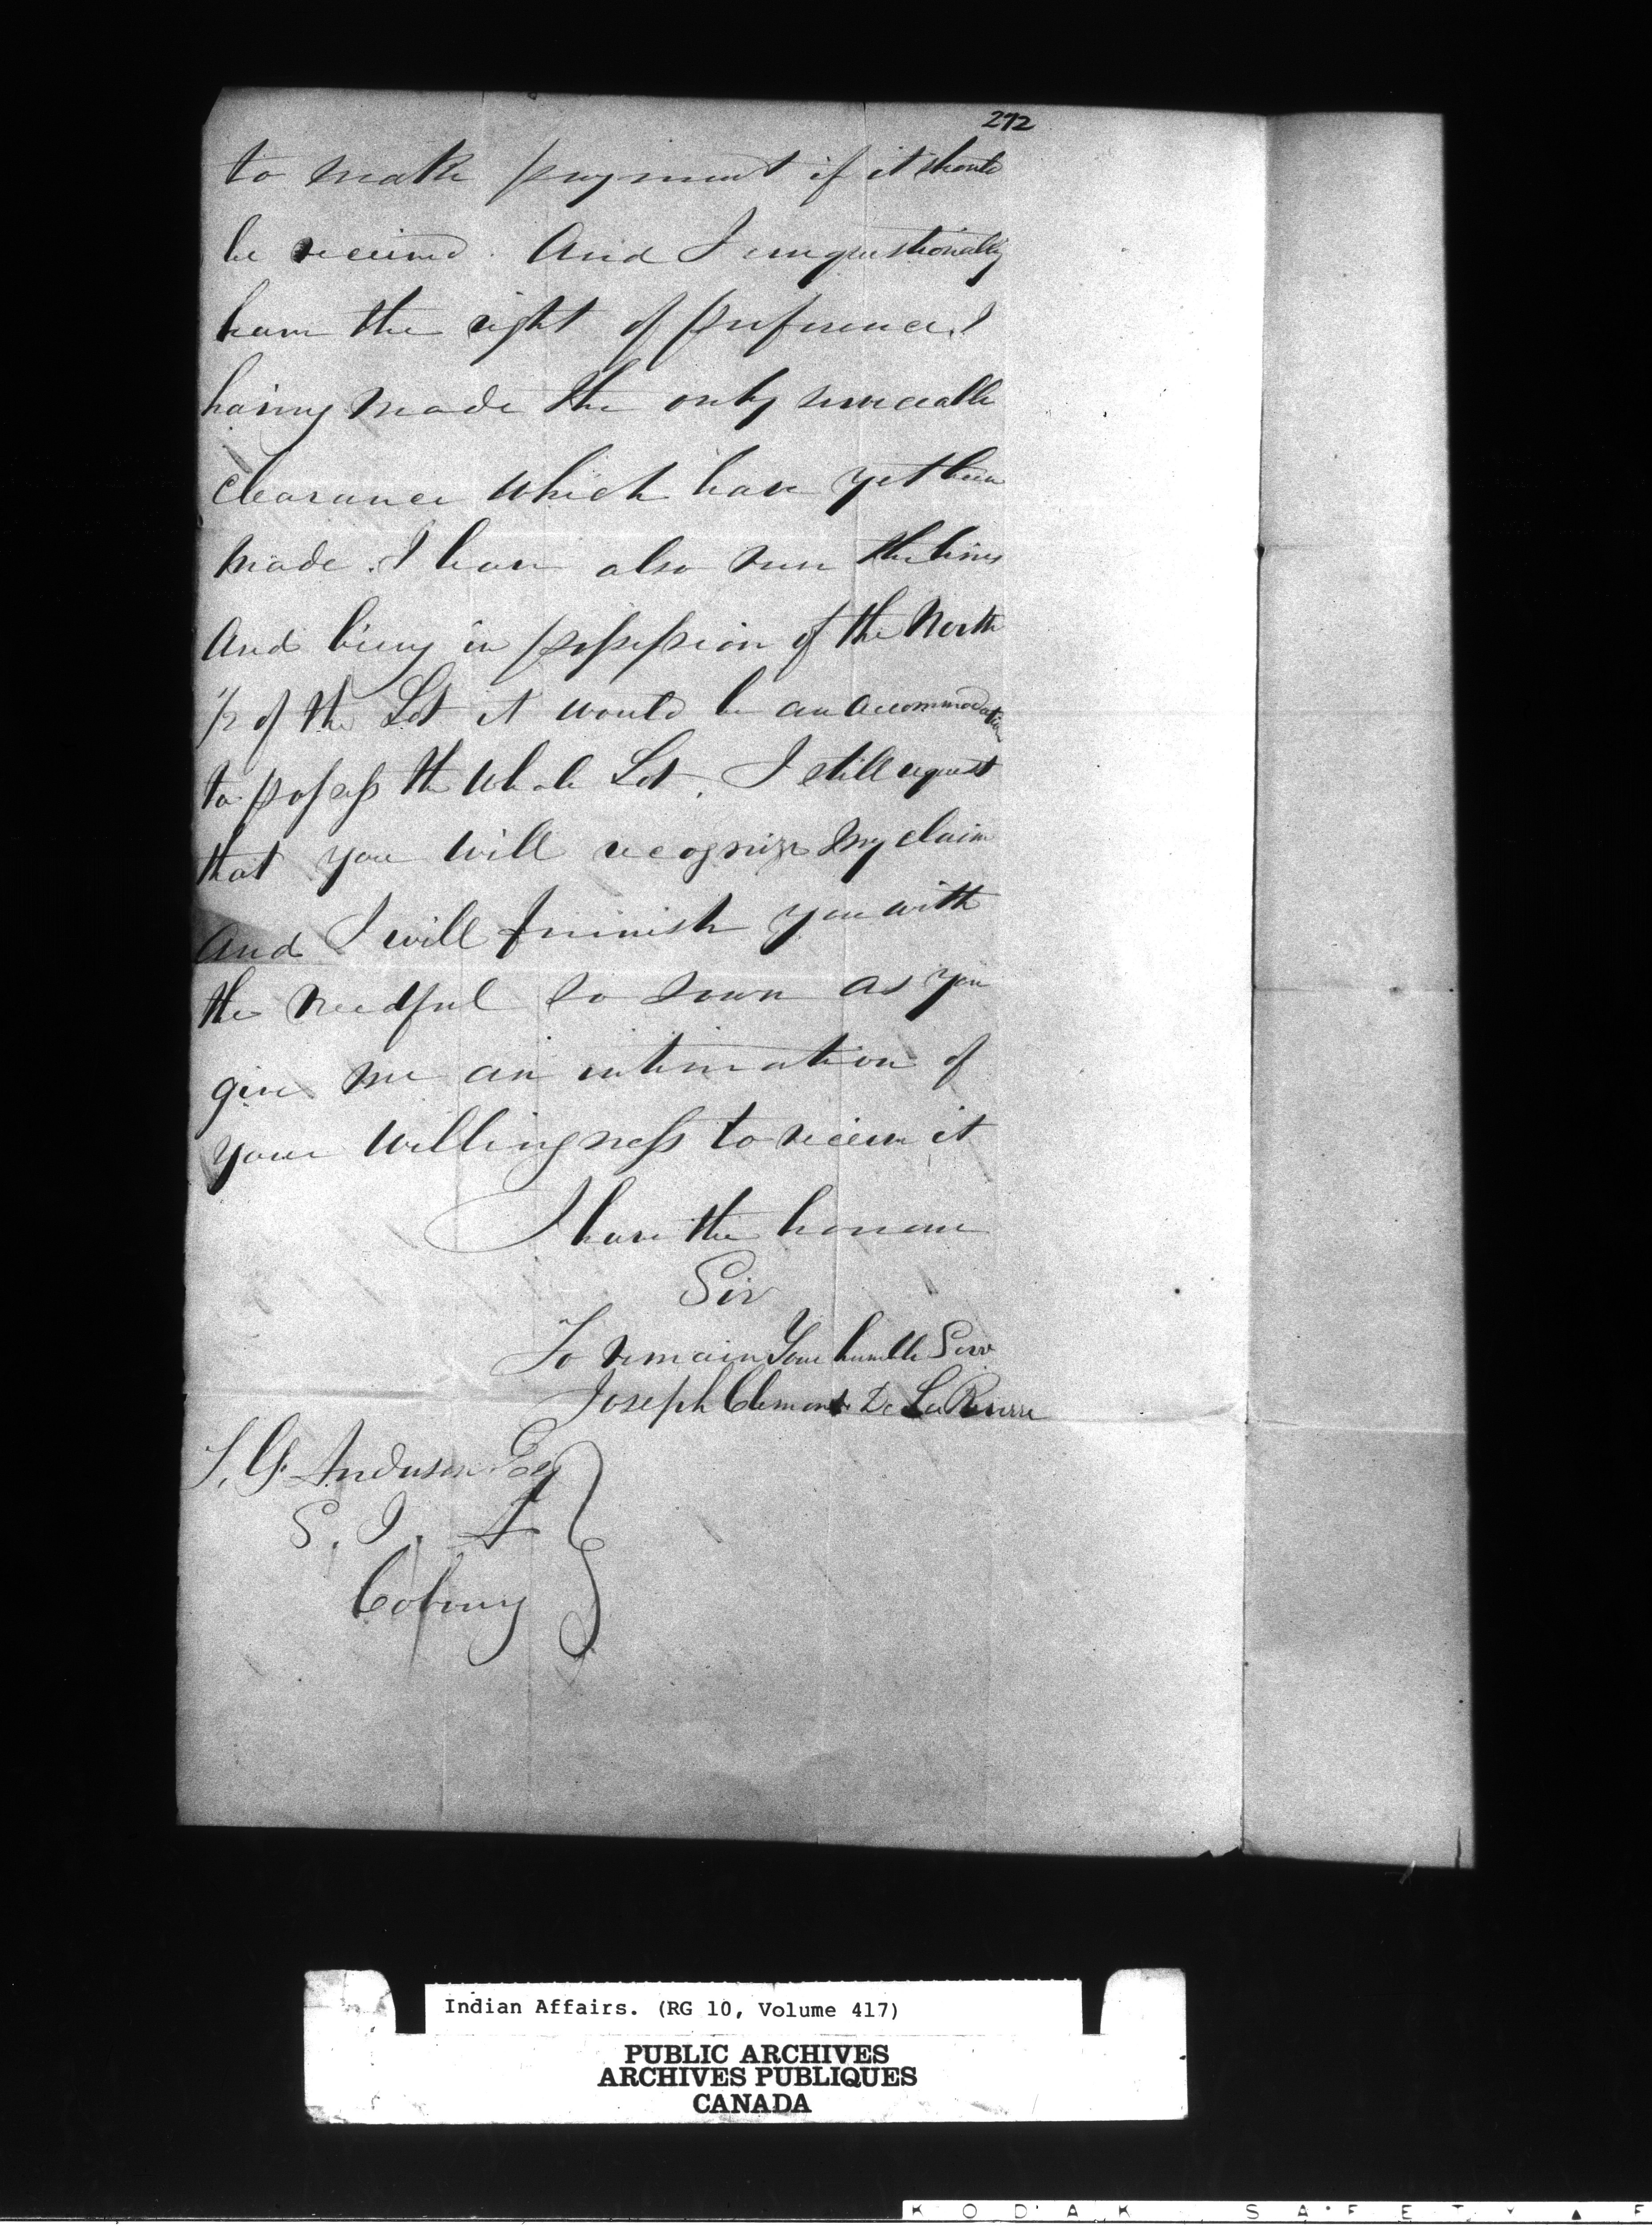 272
to make payment if it should
be received. And I unquestionably
have the right of preference I
having made the only serviceable
clearance which have yet been
made. I have also run the lines
And being in possession of the North
1/2 of the Lot it would be an accommodation
to possess the whole Lot. I still request
that you will recognize my claim
And I will furnish you with
the needful so soon as you
give me an intimation of
your willingness to receive it
I have the honour
Sir
To remain Your humble Serv
Joseph Clement De La
T. G. Anderson Esq
S. I. A
Cobourg
Indian Affairs. (RG 10, Volume 417)
PUBLIC ARCHIVES
ARCHIVES PUBLIQUES
CANADA
KODAK SAFETY